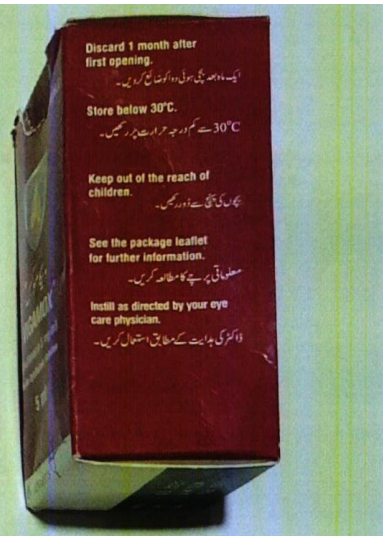 Discard 1 month after
first opening.
ایک ماہ بعد بچی ہوئی دوا کو ضائع کر دیں۔
Store below 30°C.
30°C سے کم درجہ حرارت پر رکھیں۔
Keep out of the reach of
children.
بچوں کی پہنچ سے دُور رکھیں۔
See the package leaflet
for further information.
معلوماتی پرچے کا مطالعہ کریں۔
Instill as directed by your eye
care physician.
ڈاکٹر کی ہدایت کے مطابق استعمال کریں۔